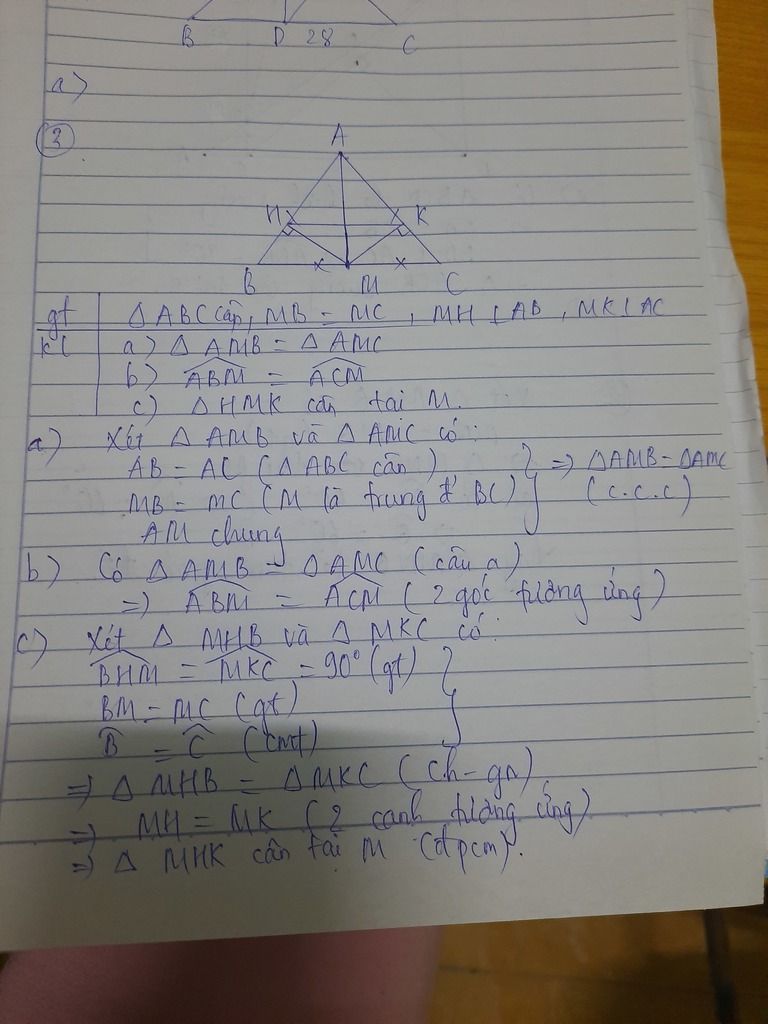 B D 28 C
a)
3
A
H K
B M C
gt ΔABC cân, MB = MC, MH ⊥ AB, MK ⊥ AC
kl a) Δ AMB = Δ AMC
b) ABM = ACM
c) Δ HMK cân tại M.
a) Xét Δ AMB và Δ AMC có:
AB = AC (Δ ABC cân)
MB = MC (M là trung đ' BC) } => ΔAMB = ΔAMC (c.c.c)
AM chung
b) Có Δ AMB = Δ AMC (câu a)
=> ABM = ACM (2 góc tương ứng)
c) Xét Δ MHB và Δ MKC có:
BHM = MKC = 90° (gt)
BM = MC (gt)
B = C (cmt)
=> Δ MHB = ΔMKC (ch-gn)
=> MH = MK (2 cạnh tương ứng)
=> Δ MHK cân tại M (đpcm).